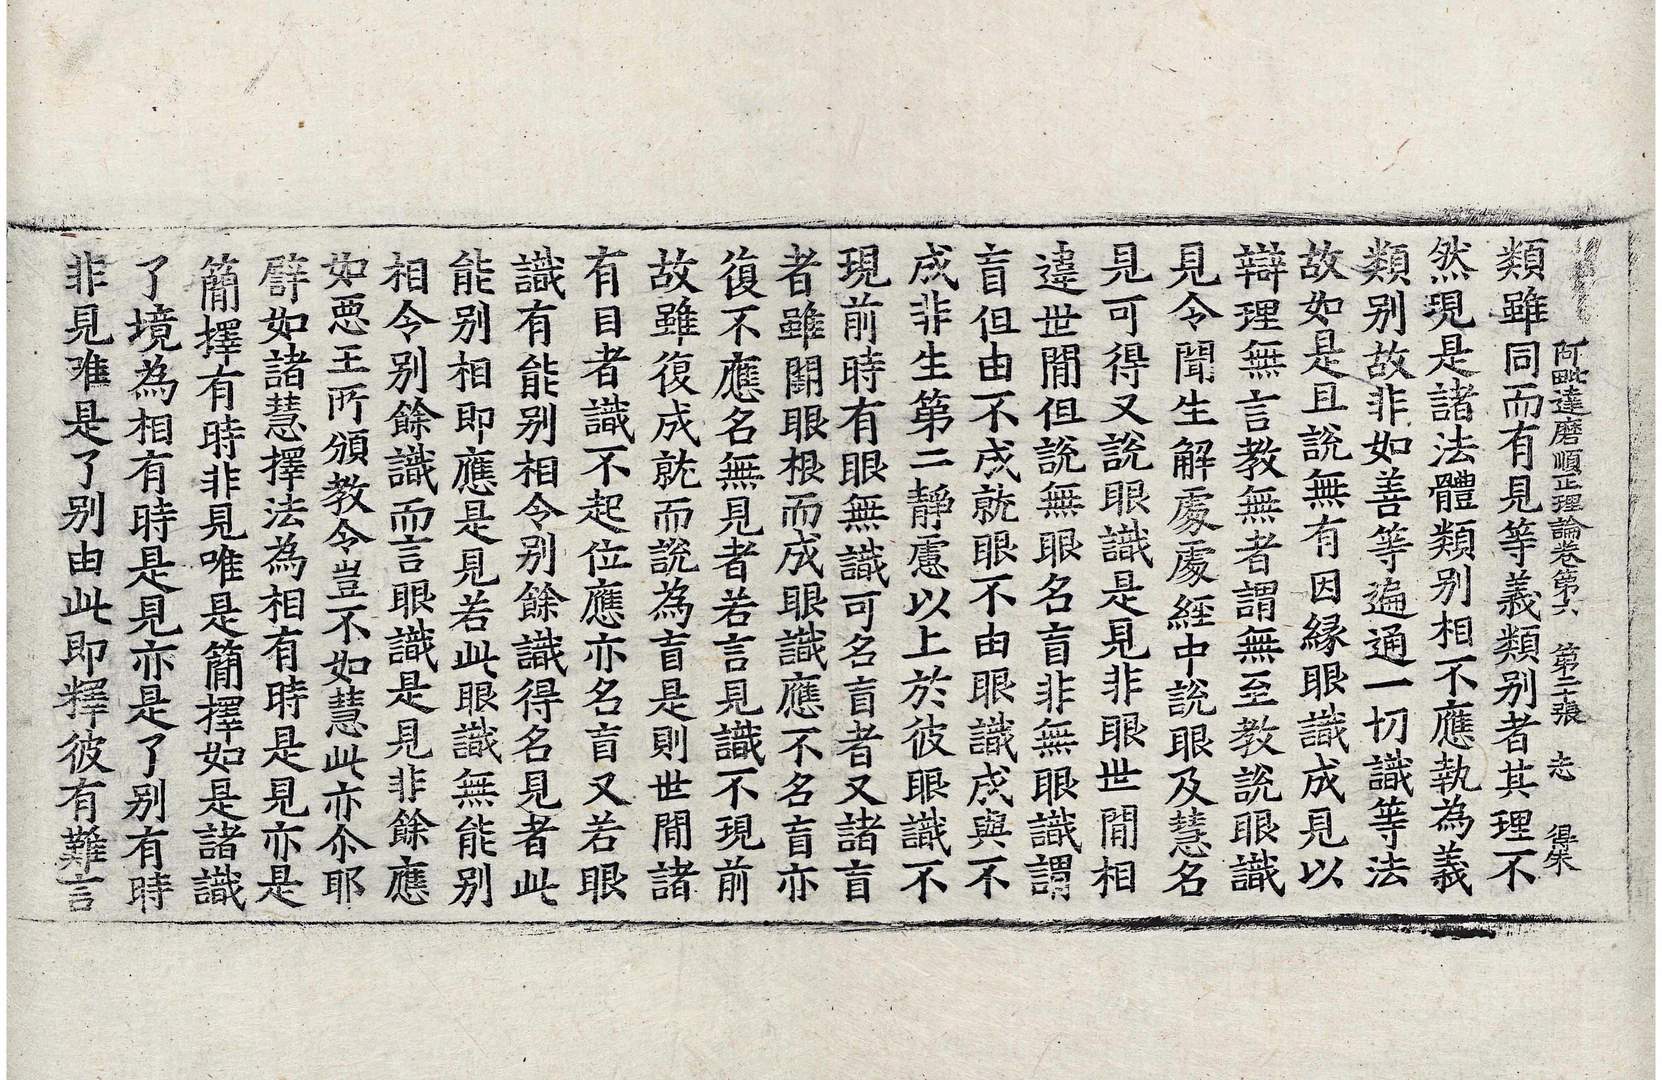 阿毗達磨順正理論卷第六　第二十張　志　得朱
類雖同而有見等義類別者其理不
然現是諸法體類別相不應執為義
類別故非如善等遍通一切識等法
故如是且說無有因緣眼識成見以
辯理無言教無者謂無至教說眼識
見令聞生解處處經中說眼及慧名
見可得又說眼識是見非眼世間相
違世間但說無眼名盲非無眼識謂
盲但由不成就眼不由眼識成與不
成非生第二靜慮以上於彼眼識不
現前時有眼無識可名盲者又諸盲
者雖闕眼根而成眼識應不名盲亦
復不應名無見者若言見識不現前
故雖復成就而說為盲是則世間諸
有目者識不起位應亦名盲又若眼
識有能別相令別餘識得名見者此
能別相即應是見若此眼識無能別
相令別餘識而言眼識是見非餘應
如惡王所頒教令豈不如慧此亦尒耶
譬如諸慧擇法為相有時是見亦是
簡擇有時非見唯是簡擇如是諸識
了境為相有時是見亦是了別有時
非見唯是了別由此即釋彼有難言